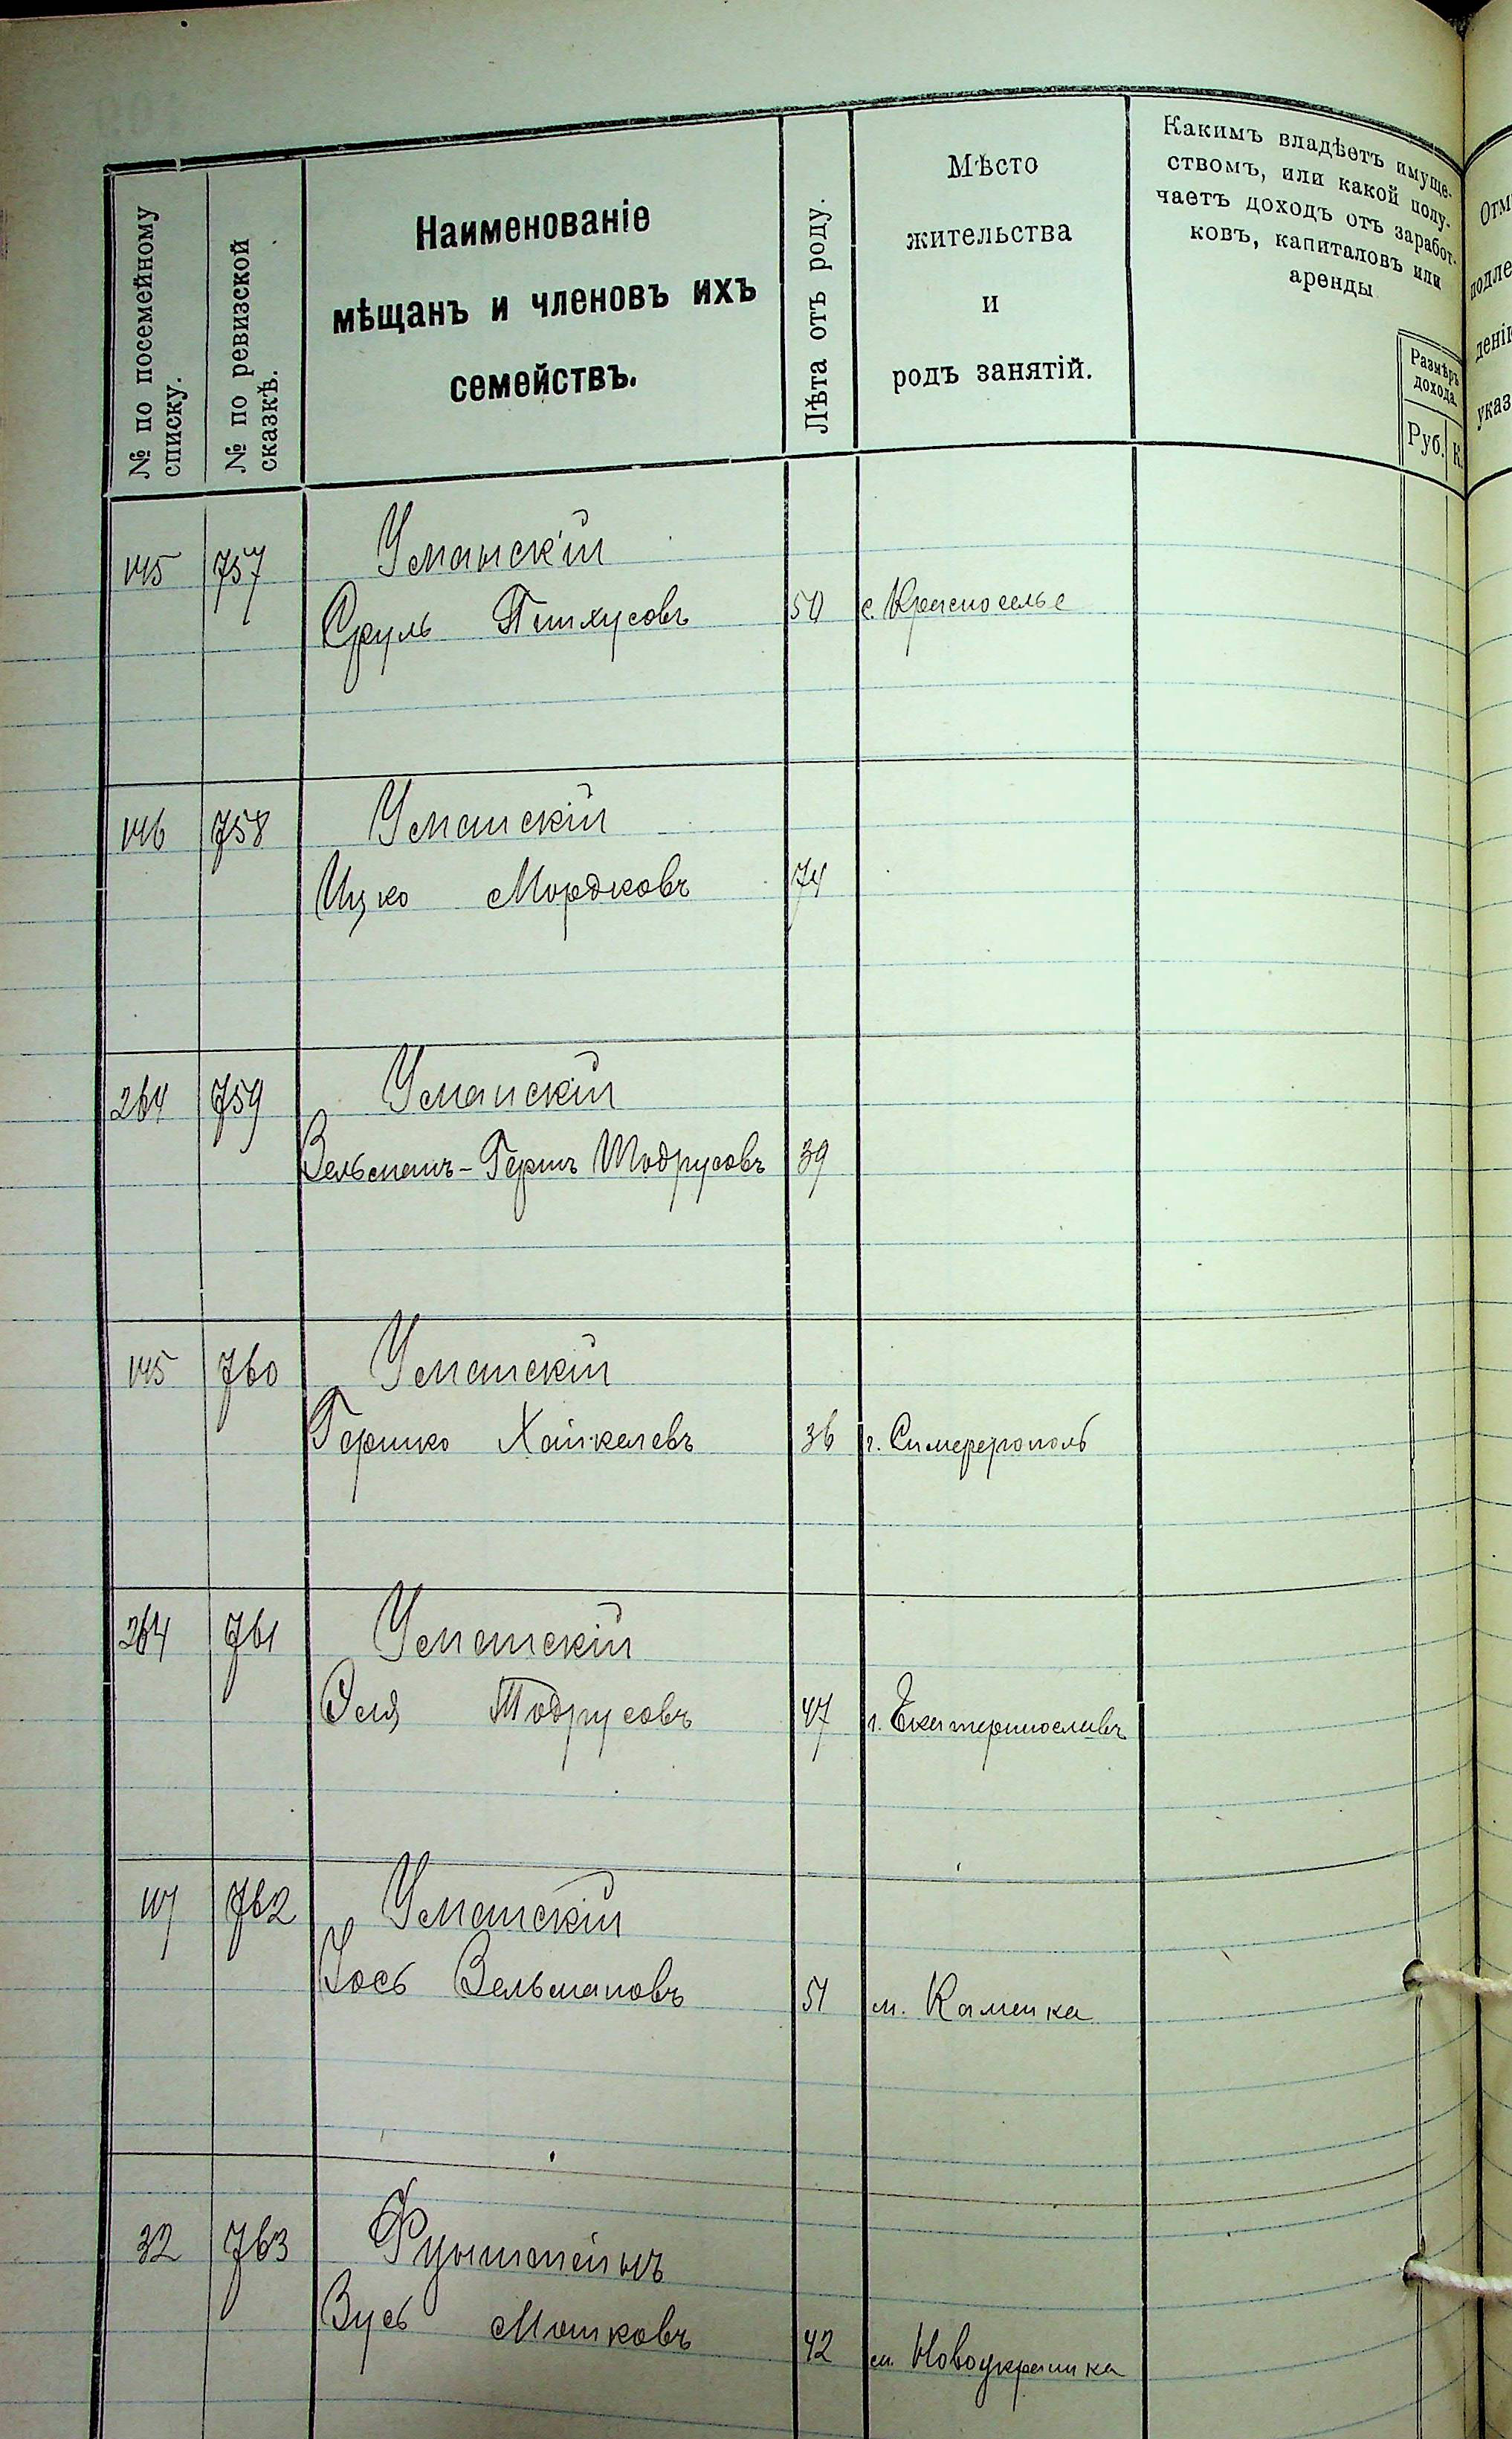 № по посемейному
списку.
№ по ревизской
сказкѣ.
Наименованіе
мѣщанъ и членовъ ихъ
семействъ.
Лѣта отъ роду.
Мѣсто
жительства
и
родъ занятій.
Какимъ владѣетъ имуще-
ствомъ, или какой полу-
чаетъ доходъ отъ заработ-
ковъ, капиталовъ или
аренды
Размѣръ
дохода.
Руб. К.
145 757 Уманскій
Сруль Пинхусовъ 50 с. Красноселье
146 758 Уманскій
Ицко Мордковъ 74
264 759 Уманскій
Вельманъ-Гершъ Тодрусовъ 39
145 760 Уманскій
Гершко Хайкелевъ 36 г. Симферополь
264 761 Уманскій
Эля Тодрусовъ 47 г. Екатеринославъ
117 762 Уманскій
Іось Вельмановъ 51 м. Каменка
32 763
Зусь Мошковъ 42 м. Новоукраинка